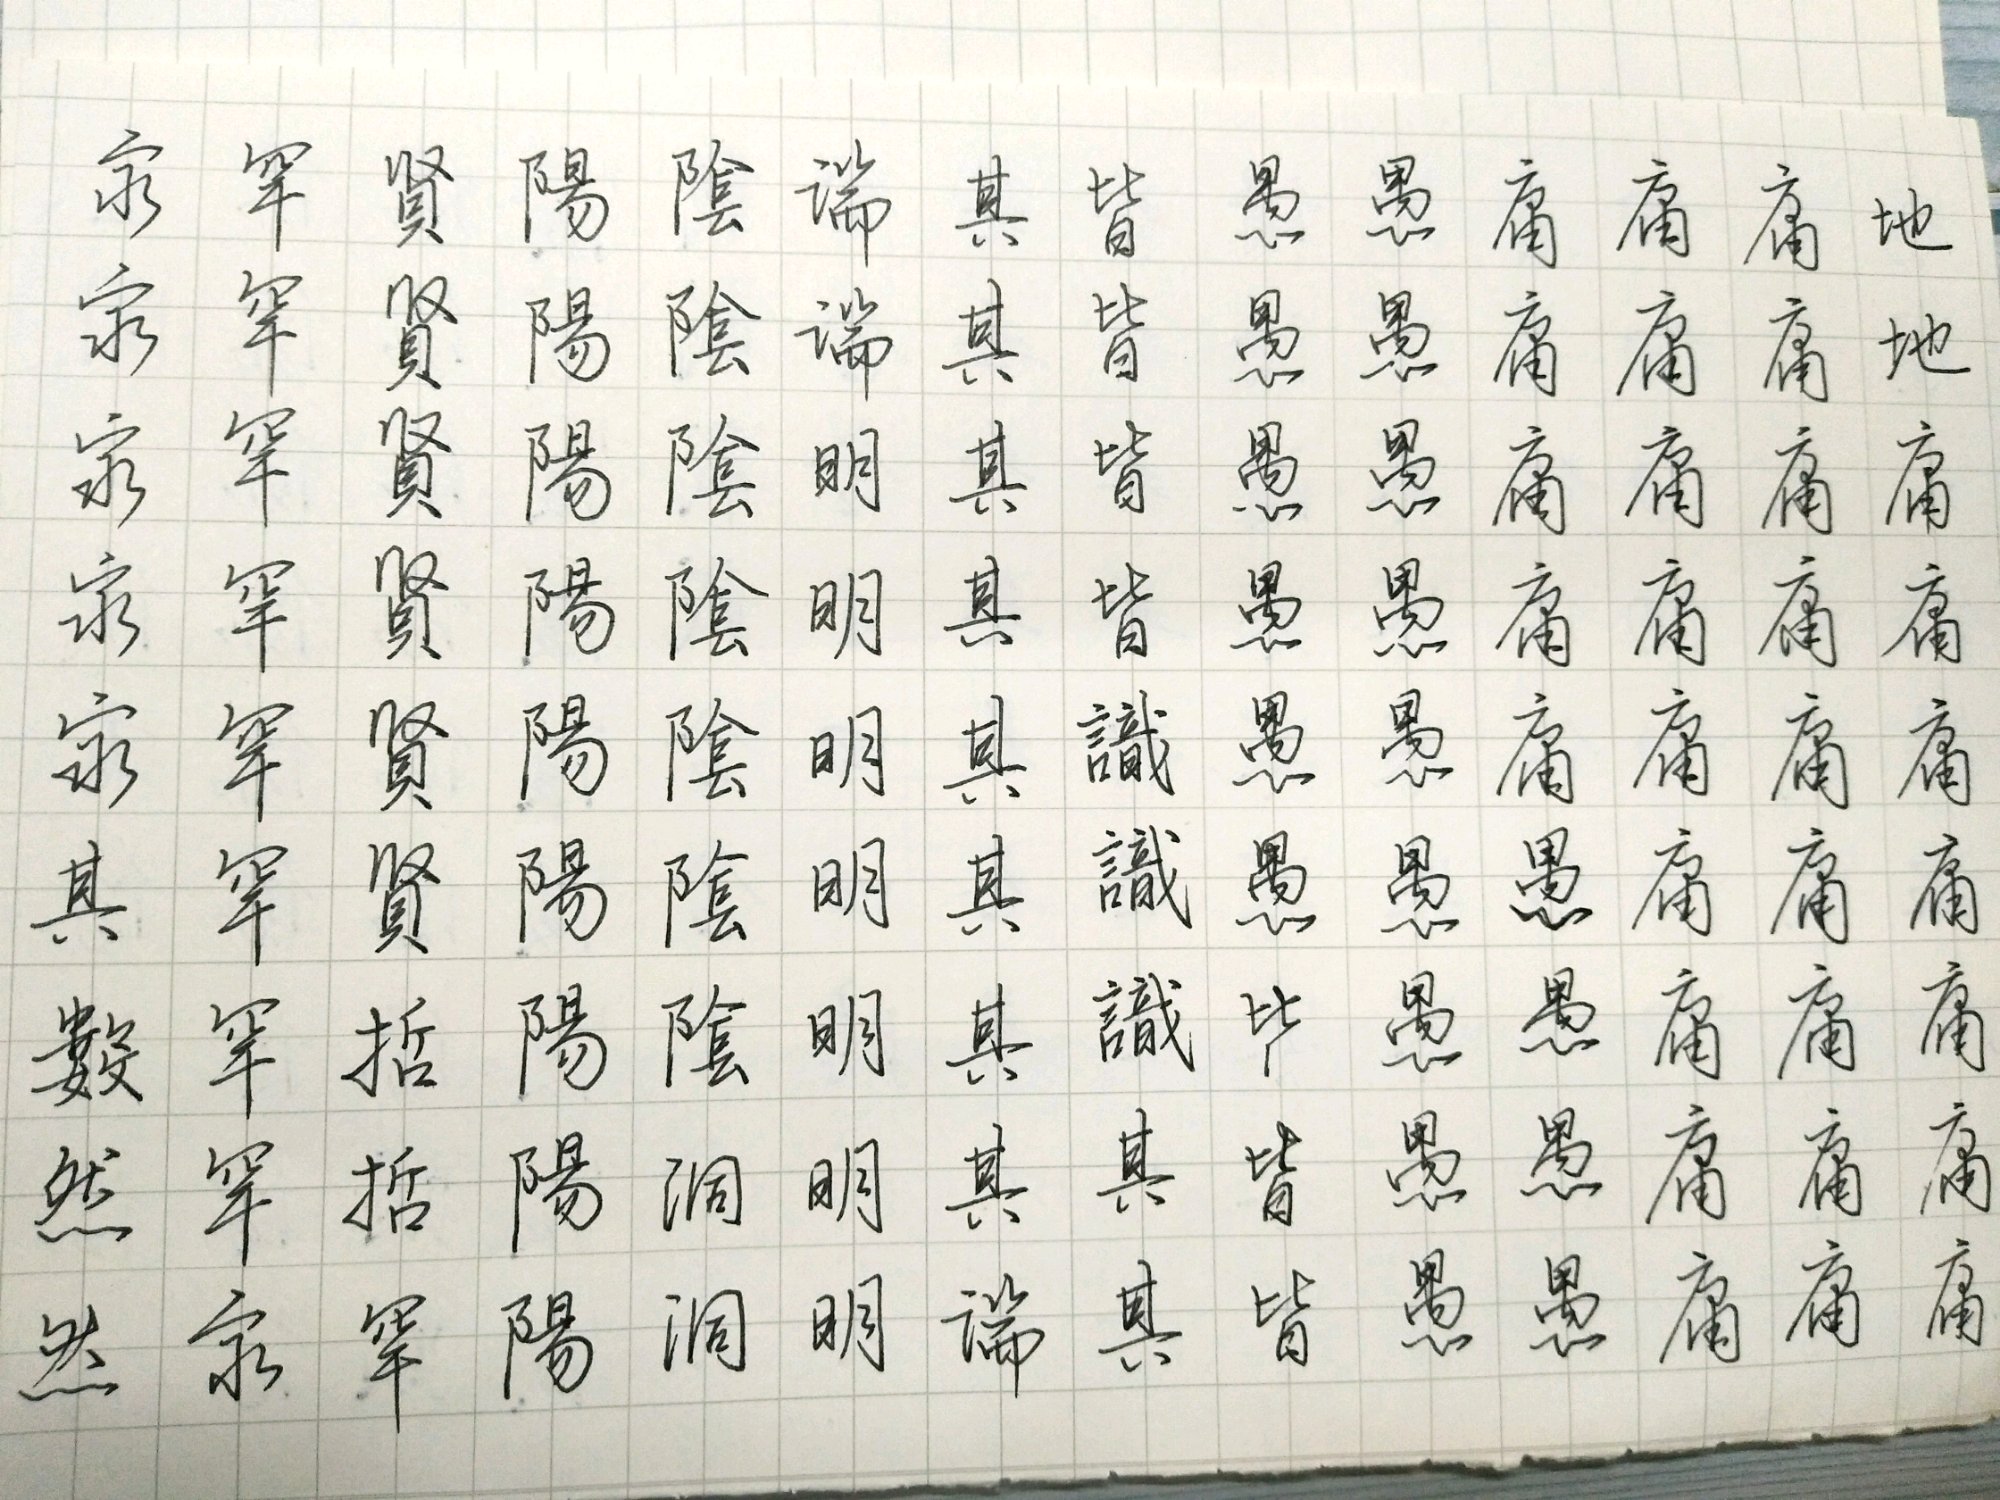 地地庸庸庸庸庸庸庸
庸庸庸庸庸庸庸庸庸
庸庸庸庸庸庸庸庸庸
庸庸庸庸庸愚愚愚愚
愚愚愚愚愚愚愚愚愚
愚愚愚愚愚愚皆皆
皆皆皆皆識識識其其
其其其其其其其其端
端端明明明明明明明
陰陰陰陰陰陰陰洞洞
陽陽陽陽陽陽陽陽陽
賢賢賢賢賢賢哲哲罕
罕罕罕罕罕罕罕罕窮
窮窮窮窮窮其數然然